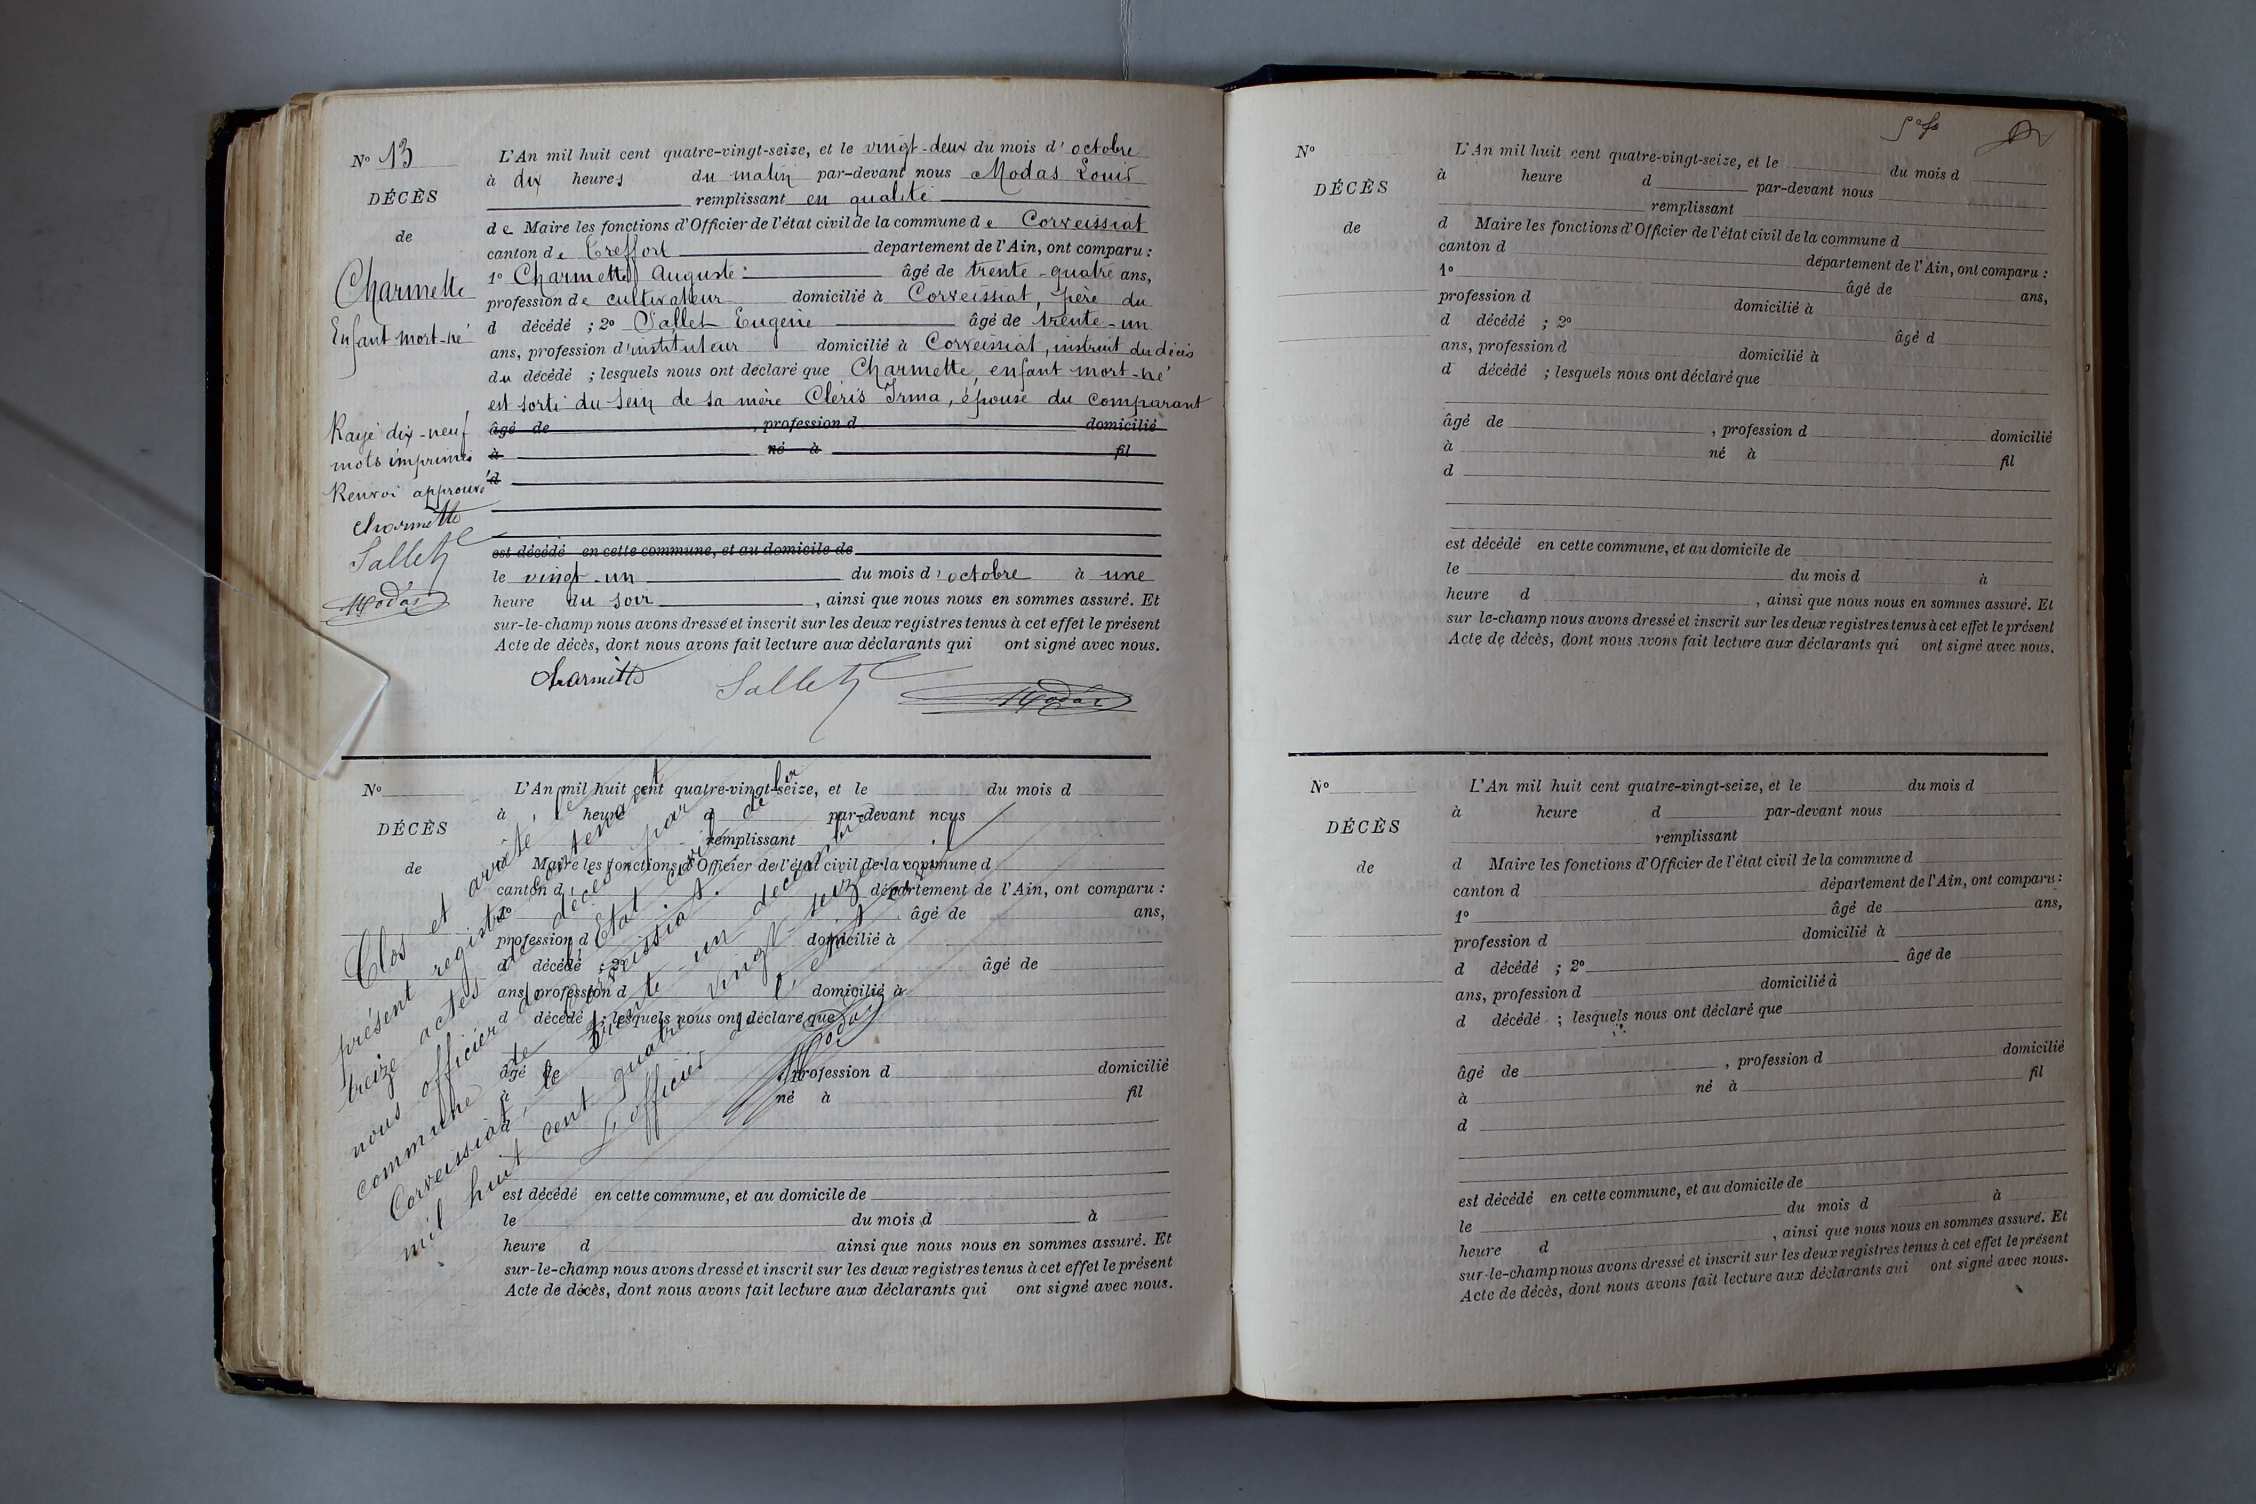 N° 13
DÉCÈS
de
Charmette
Enfant mort-né
Rayé dix-neuf
mots imprimés
Renvoi approuvé
Charmette
Sallet
Modas
L'An mil huit cent quatre-vingt-seize, et le vingt-deux du mois d'octobre
à dix heures du matin par-devant nous Modas Louis
remplissant en qualité
de Maire les fonctions d'Officier de l'état civil de la commune de Corveissiat
canton de Treffort département de l'Ain, ont comparu :
1° Charmette Auguste : âgé de trente-quatre ans,
profession de cultivateur domicilié à Corveissiat, père du
d décédé ; 2° Sallet Eugène âgé de trente-un
ans, profession d'instituteur domicilié à Corveissiat, instruit du décès
du décédé ; lesquels nous ont déclaré que Charmette, enfant mort-né
est sorti du sein de sa mère Cléris Irma, épouse du comparant
âgé de , profession d domicilié
à né à fil
d
est décédé en cette commune, et au domicile de
le vingt-un du mois d'octobre à une
heure du soir , ainsi que nous nous en sommes assuré. Et
sur-le-champ nous avons dressé et inscrit sur les deux registres tenus à cet effet le présent
Acte de décès, dont nous avons fait lecture aux déclarants qui ont signé avec nous.
Charmette Sallet Modas
N°
DÉCÈS
de
L'An mil huit cent quatre-vingt-seize, et le du mois d
à heure d par-devant nous
remplissant
d Maire les fonctions d'Officier de l'état civil de la commune d
canton d département de l'Ain, ont comparu :
1° âgé de ans,
profession d domicilié à
d décédé ; 2° âgé de
ans, profession d domicilié à
d décédé ; lesquels nous ont déclaré que
âgé de , profession d domicilié
à né à fil
d
est décédé en cette commune, et au domicile de
le du mois d à
heure d ainsi que nous nous en sommes assuré. Et
sur-le-champ nous avons dressé et inscrit sur les deux registres tenus à cet effet le présent
Acte de décès, dont nous avons fait lecture aux déclarants qui ont signé avec nous.
Clos et arrêté le
présent registre contenant
treize actes de décès par
nous officier de l'Etat civil de la
commune de Corveissiat.
Corveissiat, le trente-un décembre
mil huit cent quatre vingt-seize
L'officier de l'état civil
Modas
N°
DÉCÈS
de
L'An mil huit cent quatre-vingt-seize, et le du mois d
à heure d par-devant nous
remplissant
d Maire les fonctions d'Officier de l'état civil de la commune d
canton d département de l'Ain, ont comparu :
1° âgé de ans,
profession d domicilié à
d décédé ; 2° âgé d
ans, profession d domicilié à
d décédé ; lesquels nous ont déclaré que
âgé de , profession d domicilié
à né à fil
d
est décédé en cette commune, et au domicile de
le du mois d à
heure d , ainsi que nous nous en sommes assuré. Et
sur le-champ nous avons dressé et inscrit sur les deux registres tenus à cet effet le présent
Acte de décès, dont nous avons fait lecture aux déclarants qui ont signé avec nous.
N°
DÉCÈS
de
L'An mil huit cent quatre-vingt-seize, et le du mois d
à heure d par-devant nous
remplissant
d Maire les fonctions d'Officier de l'état civil de la commune d
canton d département de l'Ain, ont comparu :
1° âgé de ans,
profession d domicilié à
d décédé ; 2° âgé de
ans, profession d domicilié à
d décédé ; lesquels nous ont déclaré que
âgé de , profession d domicilié
à né à fil
d
est décédé en cette commune, et au domicile de
le du mois d à
heure d , ainsi que nous nous en sommes assuré. Et
sur-le-champ nous avons dressé et inscrit sur les deux registres tenus à cet effet le présent
Acte de décès, dont nous avons fait lecture aux déclarants qui ont signé avec nous.